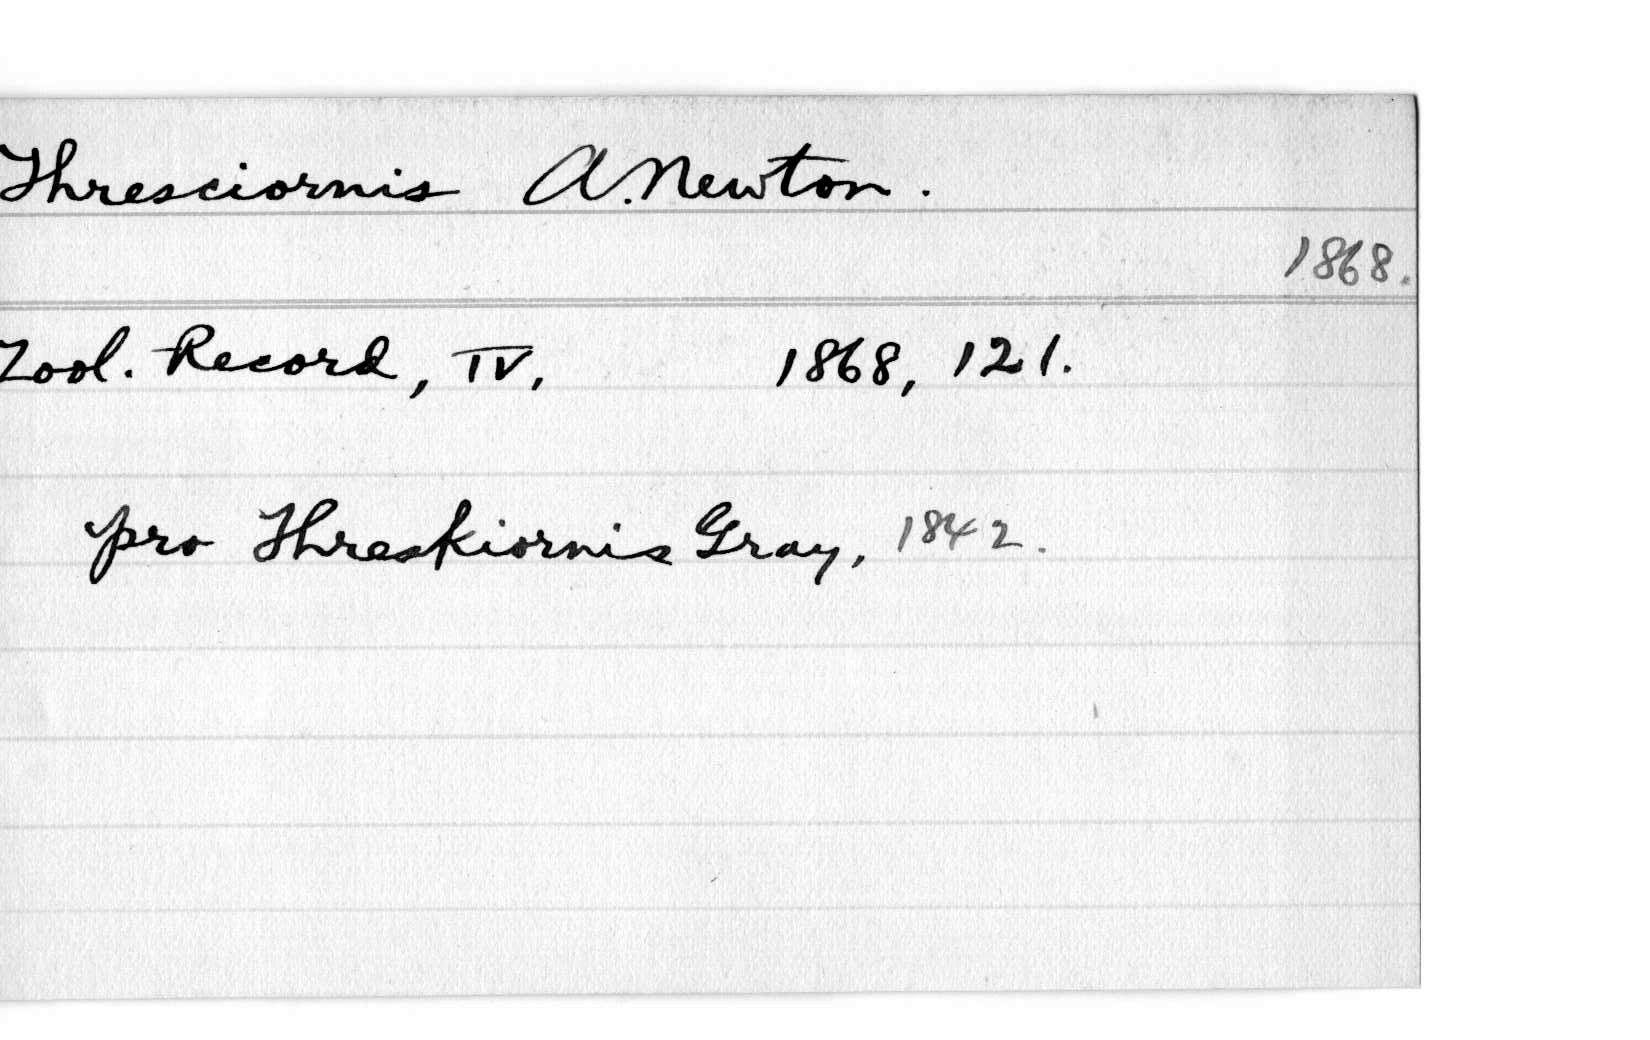 Thresciornis A. Newton.
1868.
Zool. Record, IV, 1868, 121.
pro Threskiornis Gray, 1842.